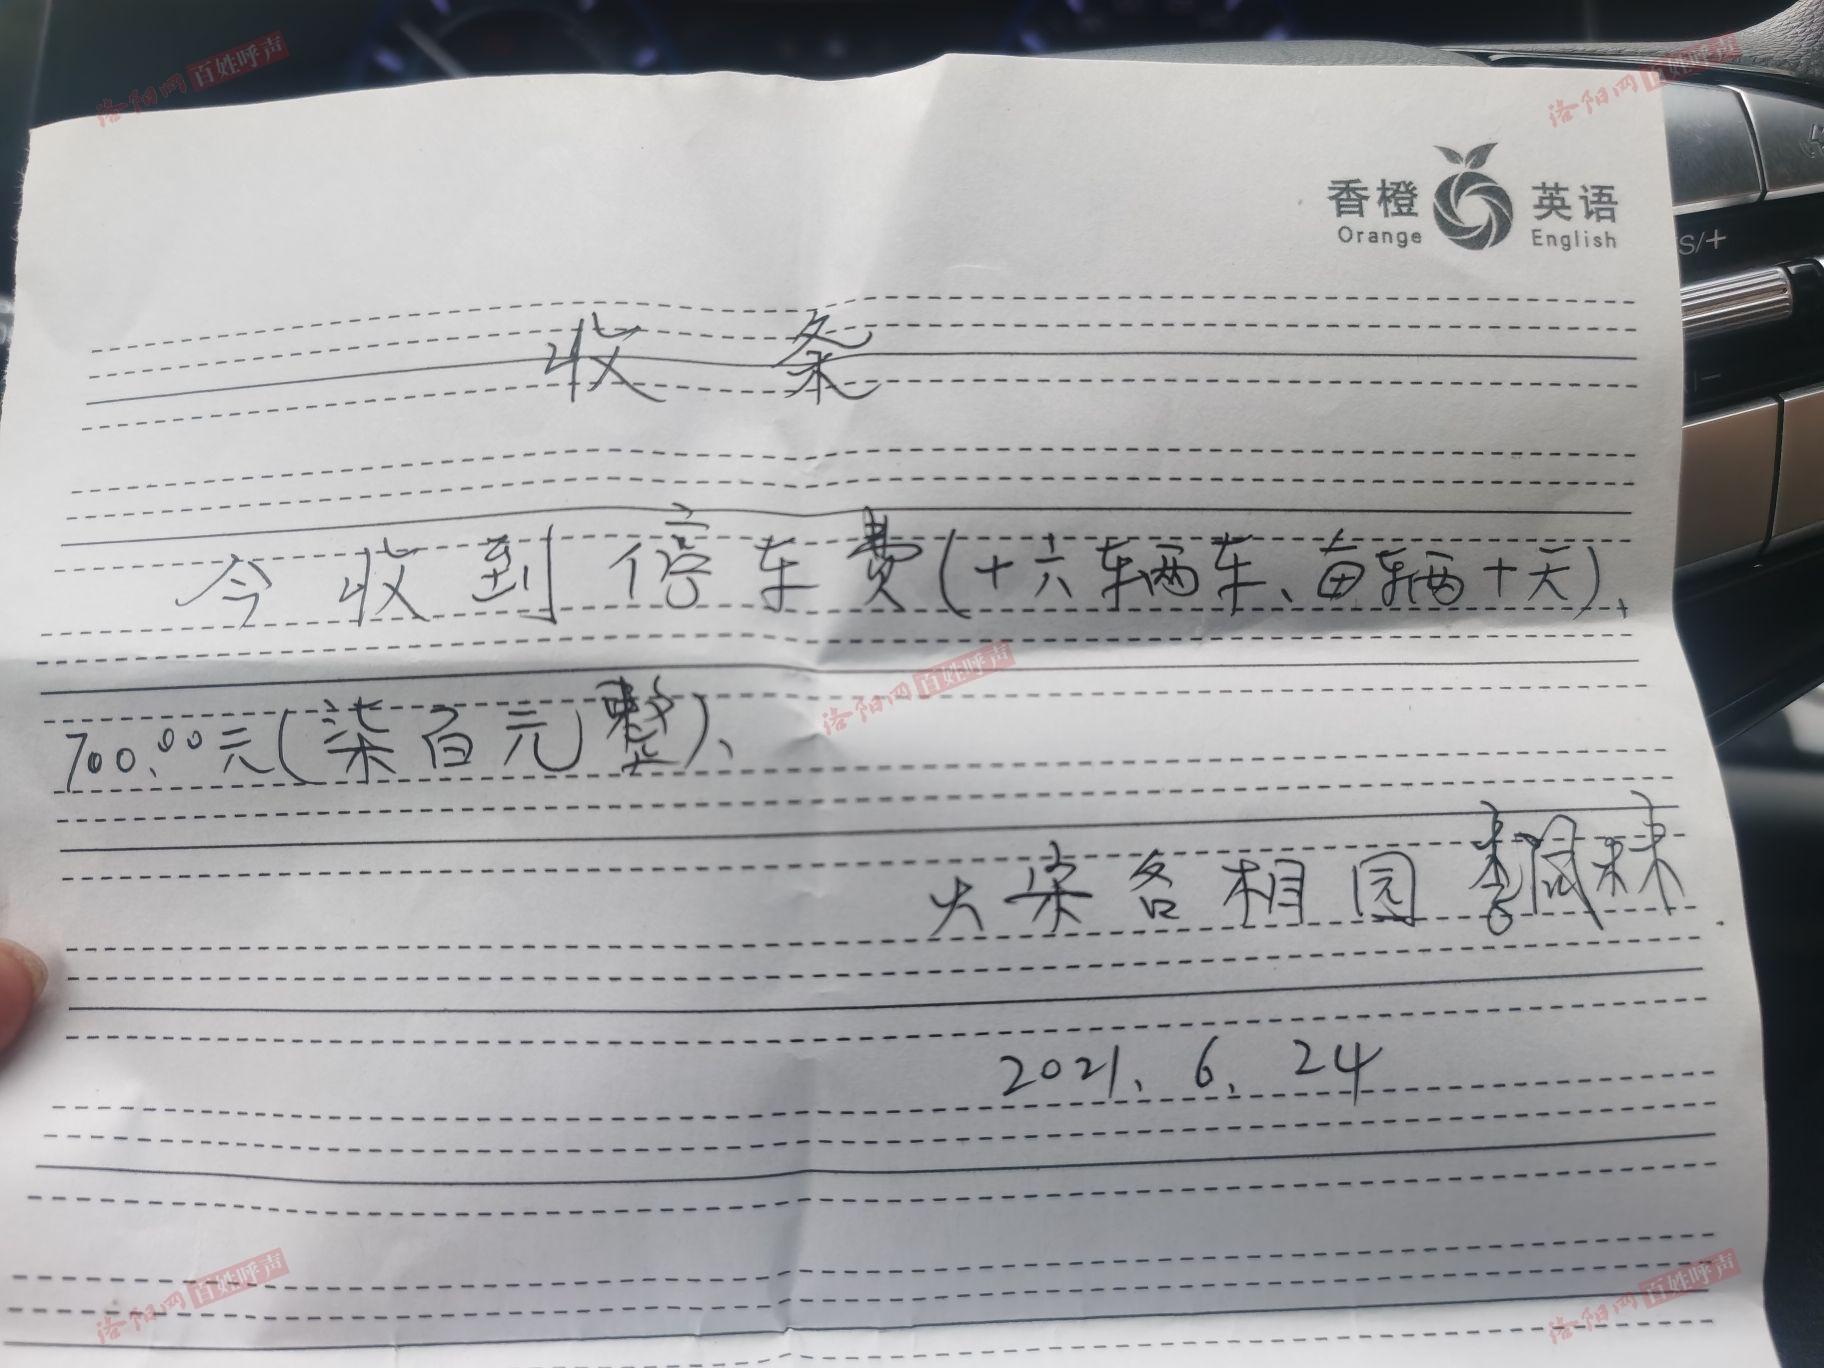 洛阳网 百姓呼声
洛阳网 百姓呼声
香橙 英语
Orange English
S/+
收条
今收到停车费(十六辆车、每辆十天)、
洛阳网 百姓呼声
700.00元(柒百元整)、
相园
2021.6.24
洛阳网 百姓呼声
洛阳网 百姓呼声